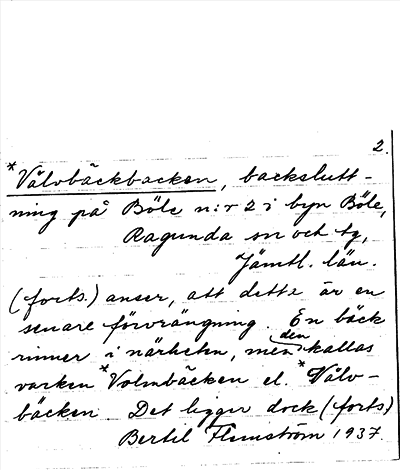 2.
*Välvbäckbacken, backslutt-
ning på Böle n:r 2 i byn Böle,
Ragunda sn och tg,
Jämtl. län.
(forts.) anser, att dette är en
senare förvrängning. En bäck
rinner i närheten, men den kallas
varken *Volmbäcken el. *Välv-
bäcken. Det ligger dock (forts)
Bertil Flemström 1937.